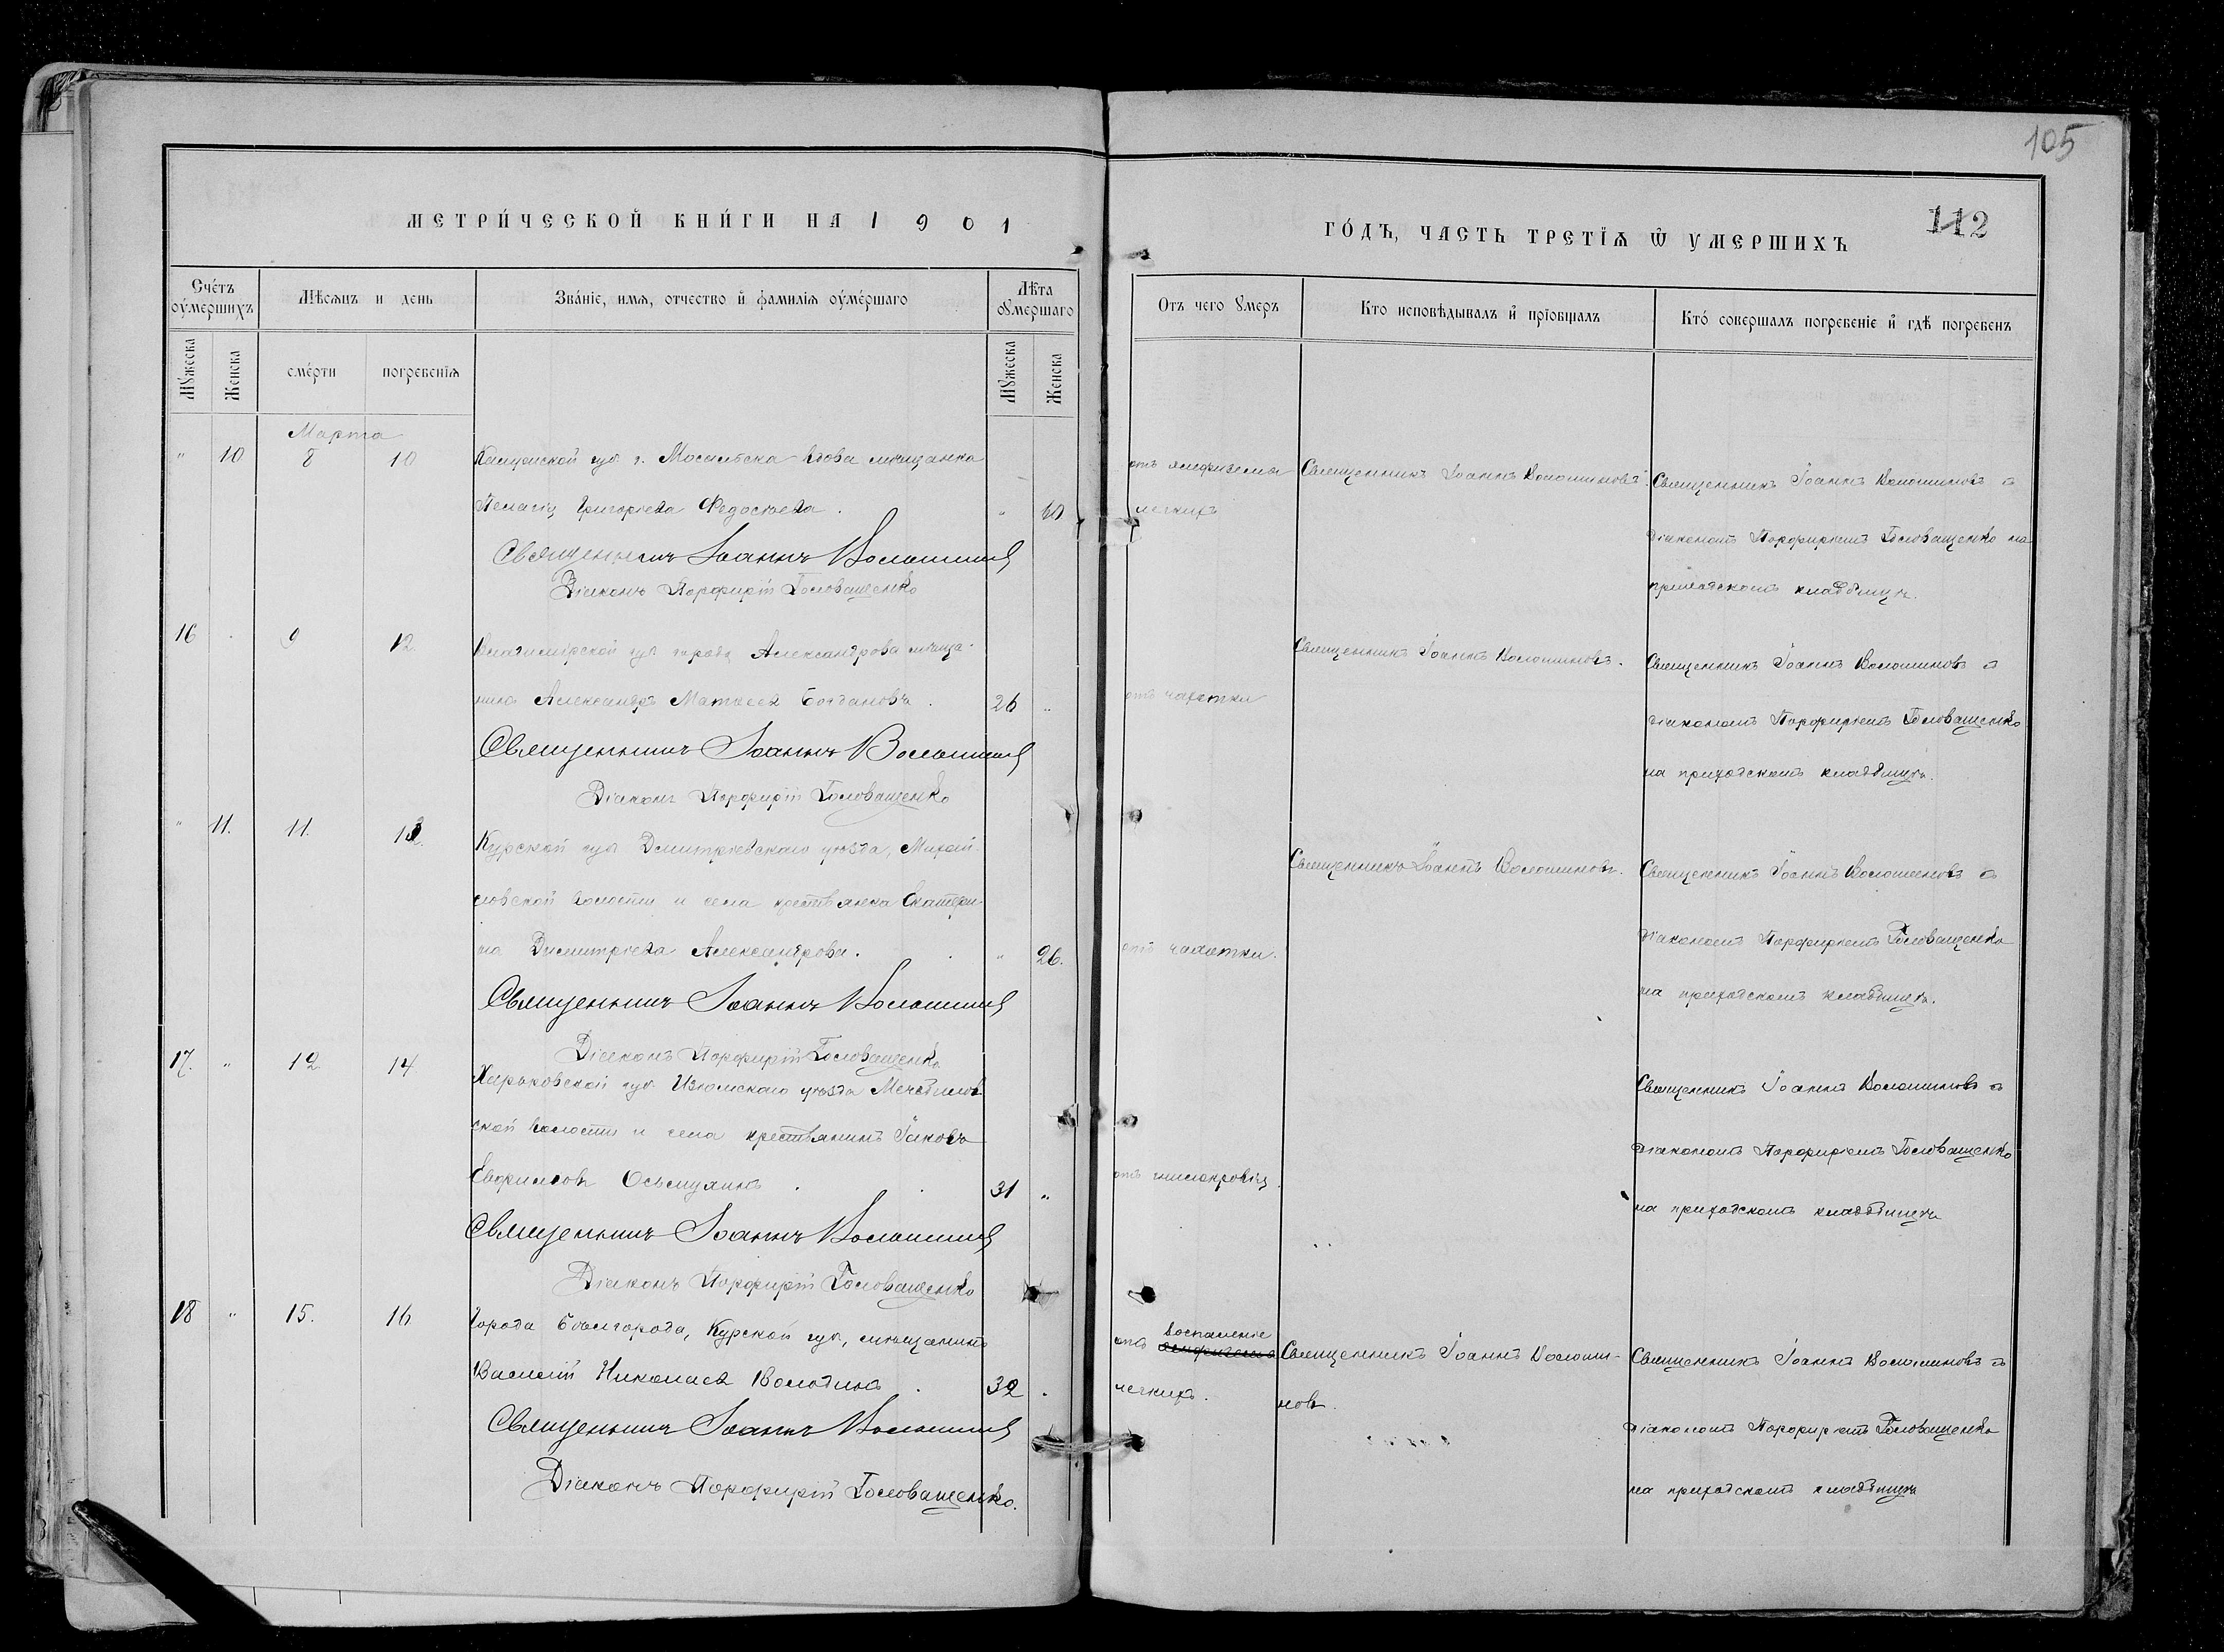 105
МЕТРИ́ЧЕСКОЙ КНИ́ГИ НА 1901
ГО́ДЪ, ЧАСТЬ ТРЕТІѦ Ѡ҆ УМЕРШИХЪ
112
Сче́тъ оу҆ме́ршихъ
Мѣсѧцъ и день
Зва́нїе, имѧ, отчество и҆ фамилїѧ оу҆ме́ршаго
Лѣ́та оу҆мершаго
Отъ чего ꙋмеръ
Кто исповѣдывалъ и҆ прїобщалъ
Кто́ совершалъ погребенїе и҆ гдѣ̀ погребенъ
Мꙋжеска
Женска
сме́рти
погребенїѧ
Мꙋжеска
Женска
Марта
" 10 8 10
Калужской губ. г. Мосальска вдова мѣщанка
Пелагія Григоріева Федосѣева. " 60
Священникъ Іоаннъ Волошинов
Діаконъ Порфирій Головащенко
отъ эмфизема
легкихъ
Священникъ Іоаннъ Волошиновъ.
Священникъ Іоаннъ Волошиновъ съ
діакономъ Порфиріемъ Головащенко на
приходскомъ кладбищѣ.
16 " 9 12.
Владимірской губ. города Александрова мѣща-
нинъ Александръ Матвеев Богдановъ. 26 "
Священникъ Іоаннъ Волошинов
Діаконъ Порфирій Головащенко
отъ чахотки
Священникъ Іоаннъ Волошиновъ.
Священникъ Іоаннъ Волошиновъ съ
діакономъ Порфиріемъ Головащенко
на приходскомъ кладбищѣ.
" 11. 11.
Курской губ. Дмитріевскаго уѣзда, Михай-
ловской волости и села крестьянка Екатери-
на Димитріева Александрова. " 26.
Священникъ Іоаннъ Волошинов
Діаконъ Порфирій Головащенко
отъ чахотки.
Священникъ Іоаннъ Волошиновъ.
Священникъ Іоаннъ Волошиновъ съ
діакономъ Порфиріемъ Головащенко
на приходскомъ кладбищѣ.
17. " 12 14
Харьковской губ. Изюмскаго уѣзда Мечебилов-
ской волости и села крестьянинъ Іаковъ
Евфимовъ 31 "
Священникъ Іоаннъ Волошинов
Діаконъ Порфирій Головащенко
отъ гнилокровія.
Священникъ Іоаннъ Волошиновъ съ
діакономъ Порфиріемъ Головащенко
на приходскомъ кладбищѣ
18 " 15. 16
Города Бѣлгорода, Курской губ., мѣщанинъ
Василій Николаев Володинъ. 32 .
Священникъ Іоаннъ Волошинов
Діаконъ Порфирій Головащенко.
воспаленіе
отъ эмфизема
легкихъ.
Священникъ Іоаннъ Волоши-
новъ.
Священникъ Іоаннъ Волошиновъ съ
діакономъ Порфиріемъ Головащенко
на приходскомъ кладбищѣ